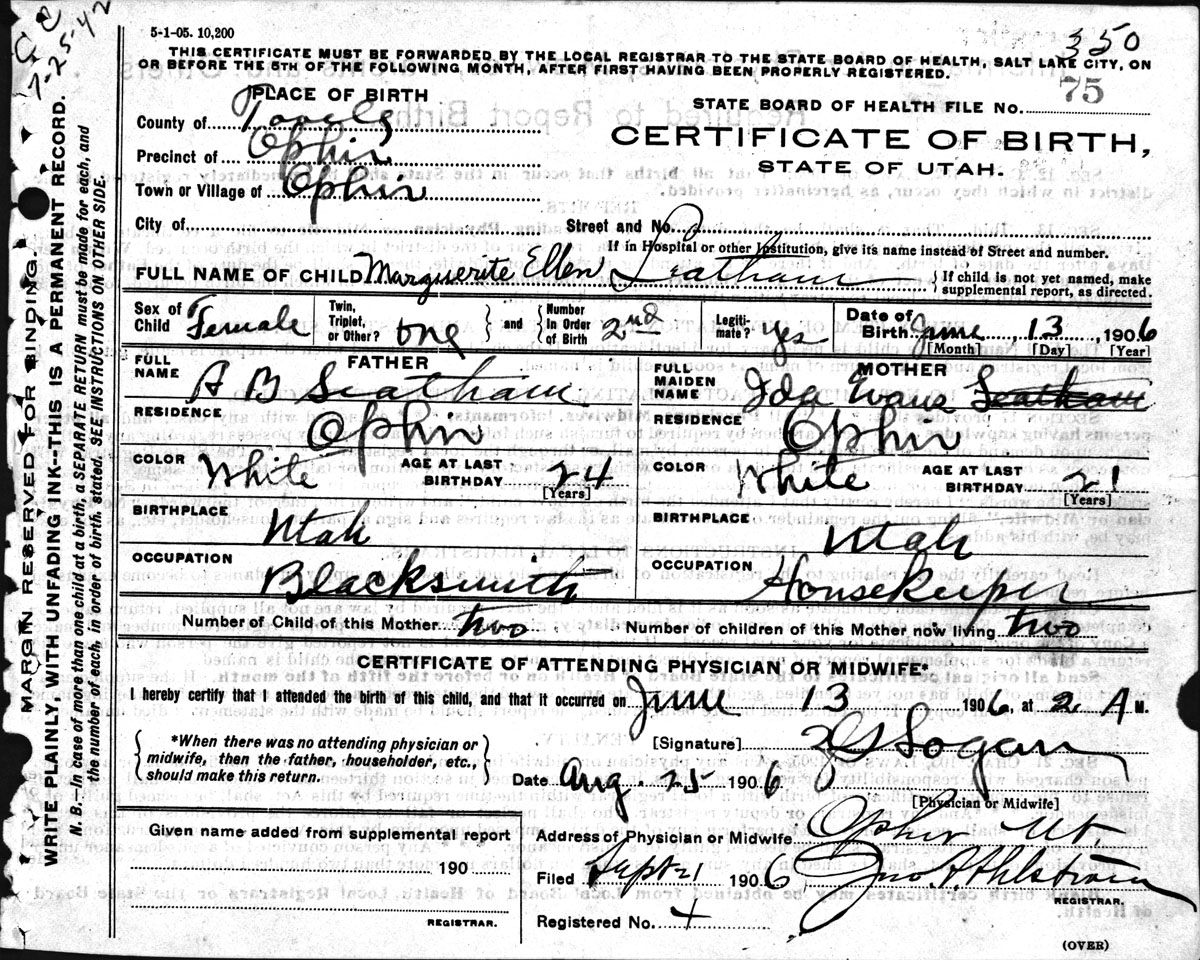 5-1-05. 10,200
350
THIS CERTIFICATE MUST BE FORWARDED BY THE LOCAL REGISTRAR TO THE STATE BOARD OF HEALTH, SALT LAKE CITY, ON
OR BEFORE THE 5TH OF THE FOLLOWING MONTH, AFTER FIRST HAVING BEEN PROPERLY REGISTERED.
7-25-42
PLACE OF BIRTH
STATE BOARD OF HEALTH FILE No. 75
County of Tooele
CERTIFICATE OF BIRTH,
Precinct of Ophir
STATE OF UTAH.
Town or Village of Ophir
City of
Street and No.
If in Hospital or other Institution, give its name instead of Street and number.
FULL NAME OF CHILD Marguerite Ellen Leatham
{If child is not yet named, make
supplemental report, as directed.
Sex of Child Female
Twin, Triplet, or Other? one
} and {
Number In Order of Birth 2nd
Legiti-mate? yes
Date of Birth June 13, 1906
[Month] [Day] [Year]
FATHER
FULL NAME A B Leatham
RESIDENCE Ophir
COLOR White
AGE AT LAST BIRTHDAY 24
[Years]
BIRTHPLACE Utah
OCCUPATION Blacksmith
MOTHER
FULL MAIDEN NAME Ida Evans Leatham
RESIDENCE Ophir
COLOR White
AGE AT LAST BIRTHDAY 21
[Years]
BIRTHPLACE Utah
OCCUPATION Housekeeper
Number of Child of this Mother two
Number of children of this Mother now living two
CERTIFICATE OF ATTENDING PHYSICIAN OR MIDWIFE*
I hereby certify that I attended the birth of this child, and that it occurred on June 13 1906, at 2 A M.
{*When there was no attending physician or
midwife, then the father, householder, etc.,
should make this return.}
[Signature] Logan
Date Aug. 25 1906
[Physician or Midwife]
Given name added from supplemental report
190
REGISTRAR.
Address of Physician or Midwife Ophir Ut
Filed Sept 21 1906 Jno A Ahlstrom
REGISTRAR.
Registered No. 4
(OVER)
MARGIN RESERVED FOR BINDING.
WRITE PLAINLY, WITH UNFADING INK--THIS IS A PERMANENT RECORD.
N. B.--In case of more than one child at a birth, a SEPARATE RETURN must be made for each, and
the number of each, in order of birth, stated. SEE INSTRUCTIONS ON OTHER SIDE.